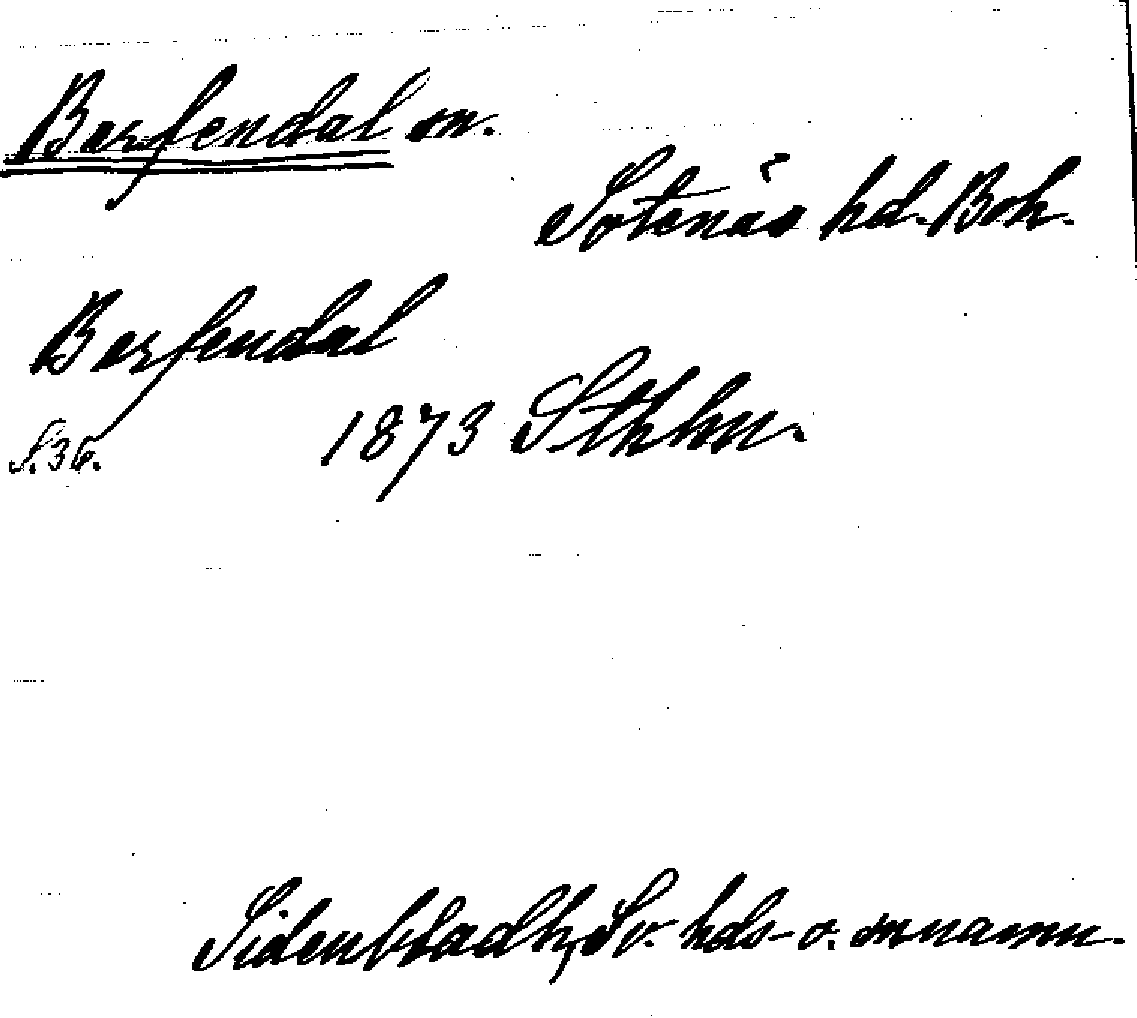 Barfendal sn.
Sotenäs hd. Boh.
Barfendal
S.36. 1873 Sthlm.
Sidenbladh, Sv. hds- o. snnamn.